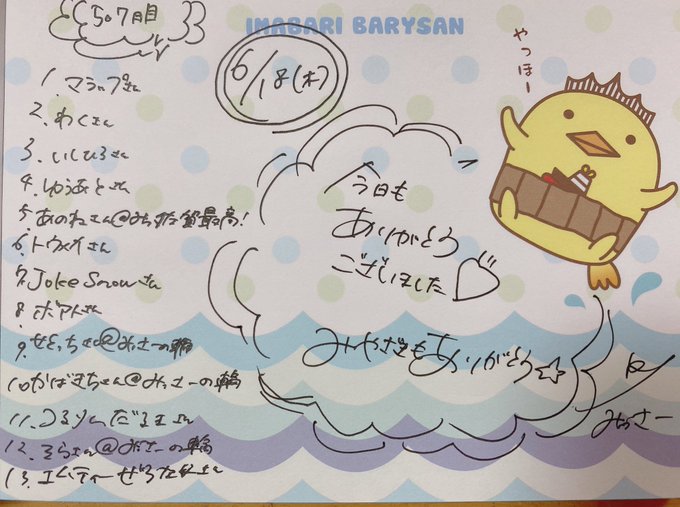 507日目
IMABARI BARYSAN
6/18(木)
やっほー
1. マラップさん
2. わくさん
3. いしひろさん
4. ゆうあとさん
5. あのねさん@みっすた箱最高!
6. トウメイさん
7. Joke Snowさん
8. ボアトさん
@みっさーの輪
10. かばきちゃん@みっさーの輪
11. つるりんだるまさん
12. そらさん@みっさーの輪
13. エムティーぜろさん
今日も
ありがとう
ございました♡
ありがとう☆
みっさー